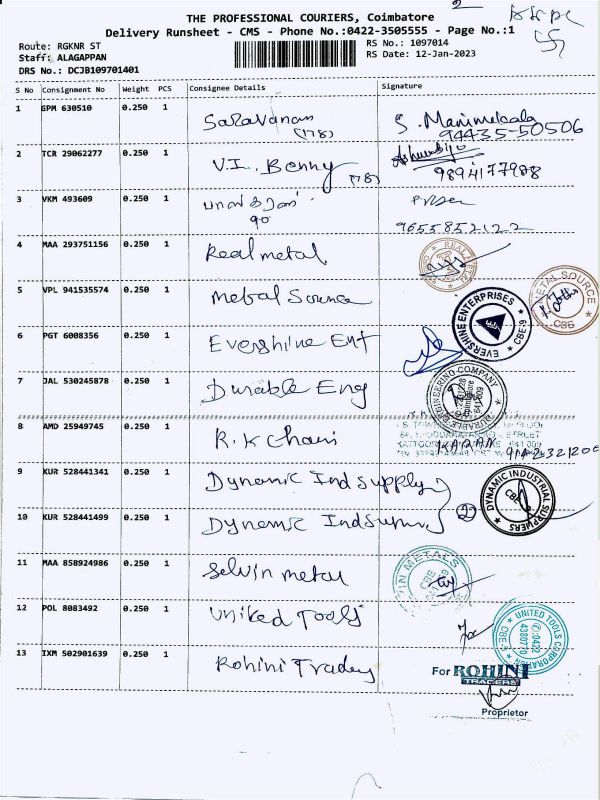 THE PROFESSIONAL COURIERS, Coimbatore
Delivery Runsheet - CMS - Phone No.:0422-3505555 - Page No.:1
Route: RGKNR ST
RS No.: 1097014
Staff: ALAGAPPAN
RS Date: 12-Jan-2023
DRS No.: DCJB109701401
S No Consignment No Weight PCS Consignee Details Signature
1 GPM 630510 0.250 1 Saravanan S. Manimekala
(178) 94435-50506
2 TCR 29062277 0.250 1 V.I. Benny
(178) 9894177988
3 VKM 493609 0.250 1
90 9655852122
4 MAA 293751156 0.250 1 Real metal
5 VPL 941535574 0.250 1 Metal Source METAL SOURCE CBE
6 PGT 6008356 0.250 1 Evershine Ent EVERSHINE ENTERPRISES CBE-9
7 JAL 530245878 0.250 1 Durable Eng DURABLE ENGINEERING COMPANY
8 AMD 25949745 0.250 1 R.K Chani
9 KUR 528441341 0.250 1 Dynamic Ind Supply DYNAMIC INDUSTRIAL SUPPLIERS CBE
10 KUR 528441499 0.250 1 Dynamic Ind 2
11 MAA 858924986 0.250 1 Selvin metal METALS CBE-9
12 POL 8083492 0.250 1 United Tools UNITED TOOLS CORPORATION CBE-9 0422 4380770
13 IXM 502901639 0.250 1 Rohini Trades For ROHINI
TRADERS
Proprietor